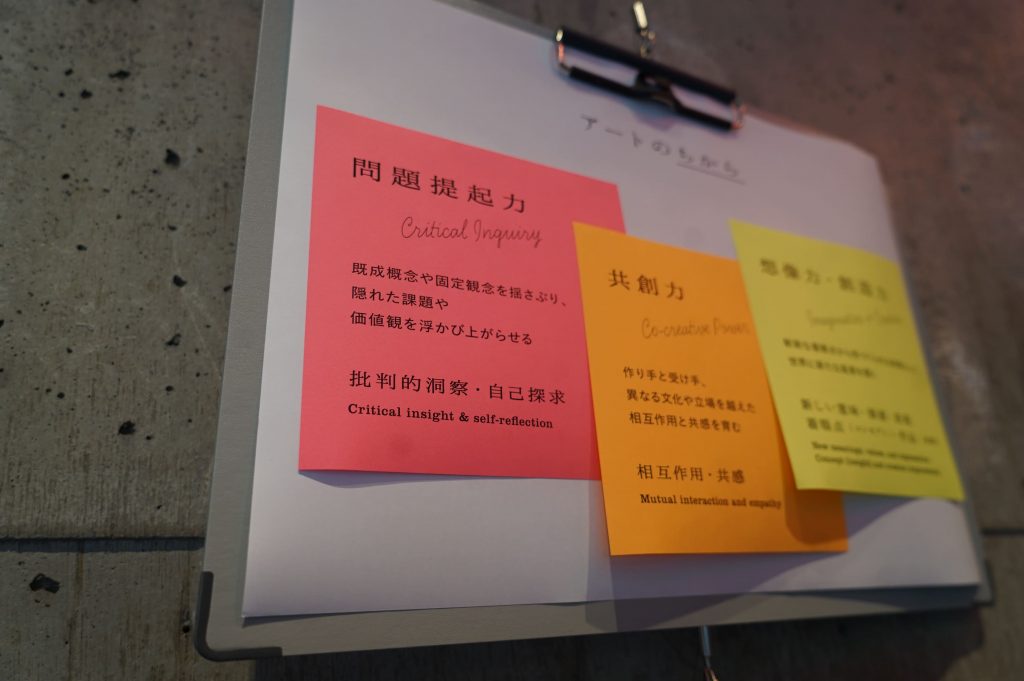 アートのちから
問題提起力
Critical Inquiry
既成概念や固定観念を揺さぶり、
隠れた課題や
価値観を浮かび上がらせる
批判的洞察・自己探求
Critical insight & self-reflection
共創力
Co-creative Power
作り手と受け手、
異なる文化や立場を越えた
相互作用と共感を育む
相互作用・共感
Mutual interaction and empathy
想像力・創造力
新しい意味・価値・表現